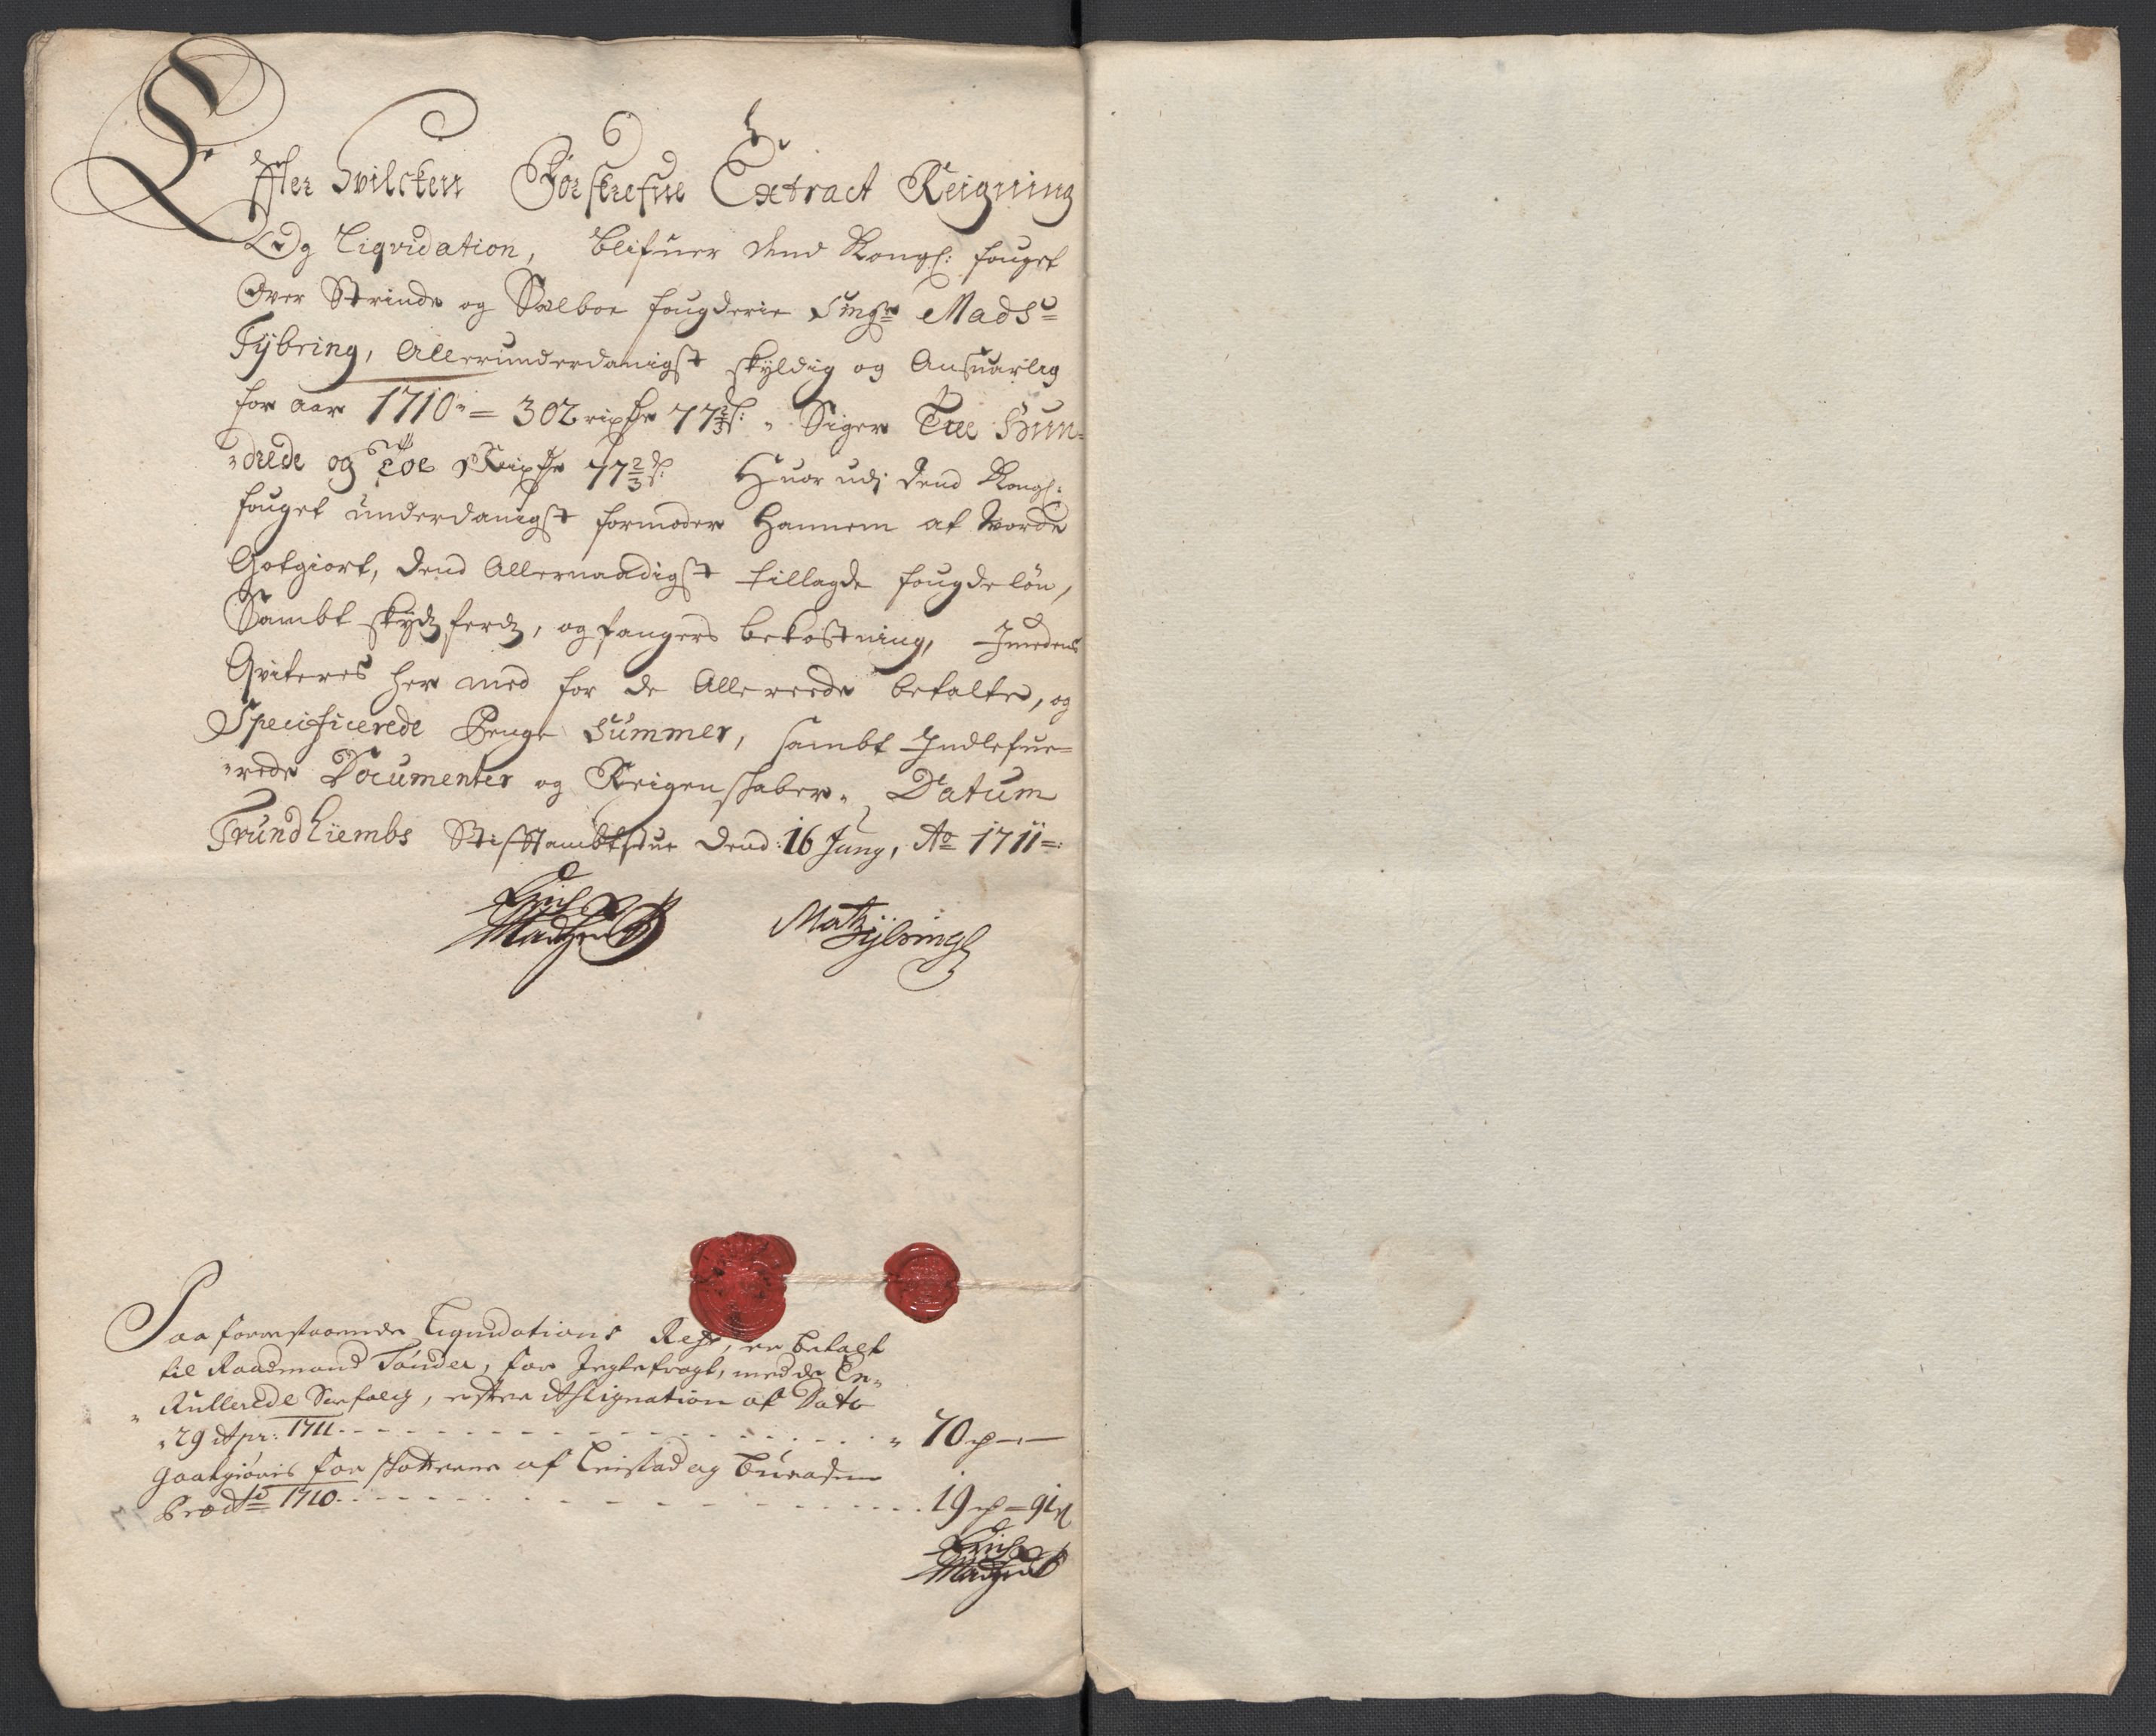 Effter Hvilcken Forskrefne Extract Reigning
Og Liqvidation, blifuer dend Kongl: fouget
Over Strinde og Sælboe fougderie Singr Mads
Tÿbring, Allerunderdanigst skyldig og Ansuarlig
for aar 1710 = 302 rixdr 77⅔ s: Siger Tree Hun-
drede og Toe Rixdr 77⅔ s: Huor udj dend Kongl:
fouget underdanigst formoder hannem at worde
Gotgiort, dend Allernaadigst tillagde fougdeløn,
Sambt skydsferdz, og fangers bekostning, Jmedens
Qviteres her med for de Allereede betalte, og
Specificerede Penge Summer, sambt Jndlefue-
rede Documenter og Reigenskaber. Datum
Trundhiembs Stifftambtstue dend: 16 Junÿ, Ao 1711
Erich Madtzen
Matz Tÿbring
Paa forrestaaende Liqvidations Rest, er betalt
til Raadmand Tønder, for Jegtefragt, med de En-
Rullerede Søefolck, efter Assignation af Dato
29 Apr: 1711 70
Gaatgiøris for skatterne af
Pro Ao 1710 19 = 91
Erich Madtzen